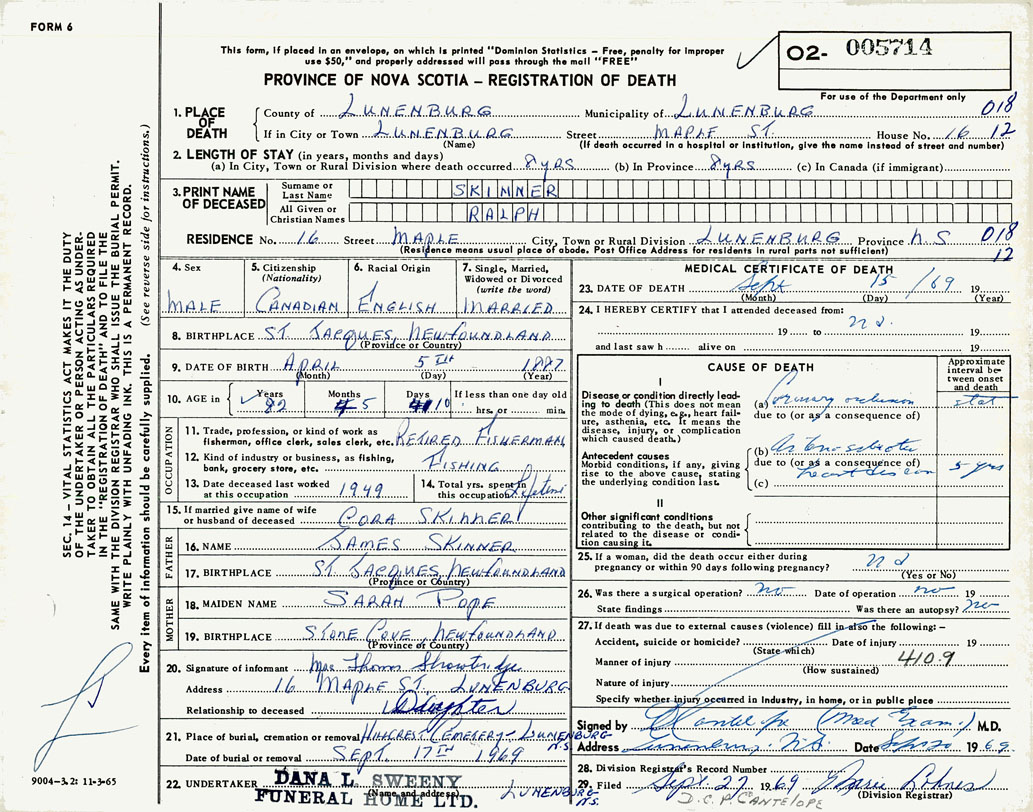 FORM 6
This form, if placed in an envelope, on which is printed "Dominion Statistics – Free, penalty for improper
use $50," and properly addressed will pass through the mail "FREE"
PROVINCE OF NOVA SCOTIA – REGISTRATION OF DEATH
02- 005714
For use of the Department only
018
12
1. PLACE OF DEATH
County of LUNENBURG Municipality of LUNENBURG
If in City or Town LUNENBURG Street MAPLE ST. House No. 16
(Name) (If death occurred in a hospital or institution, give the name instead of street and number)
2. LENGTH OF STAY (in years, months and days)
(a) In City, Town or Rural Division where death occurred 8 YRS (b) In Province 8 YRS (c) In Canada (if immigrant)
3. PRINT NAME OF DECEASED
Surname or Last Name SKINNER
All Given or Christian Names RALPH
RESIDENCE No. 16 Street MAPLE City, Town or Rural Division LUNENBURG Province N.S
(Residence means usual place of abode. Post Office Address for residents in rural parts not sufficient)
018
12
4. Sex
MALE
5. Citizenship
(Nationality)
CANADIAN
6. Racial Origin
ENGLISH
7. Single, Married,
Widowed or Divorced
(write the word)
MARRIED
8. BIRTHPLACE ST JACQUES, NEWFOUNDLAND
(Province or Country)
9. DATE OF BIRTH APRIL 5TH 1887
(Month) (Day) (Year)
10. AGE in
Years Months Days If less than one day old
82 5 10 hrs. or min.
OCCUPATION
11. Trade, profession, or kind of work as
fisherman, office clerk, sales clerk, etc. RETIRED FISHERMAN
12. Kind of industry or business, as fishing,
bank, grocery store, etc. FISHING
13. Date deceased last worked
at this occupation 1949
14. Total yrs. spent in
this occupation Lifetime
15. If married give name of wife
or husband of deceased CORA SKINNER
FATHER
16. NAME JAMES SKINNER
17. BIRTHPLACE ST. JACQUES, NEWFOUNDLAND
(Province or Country)
MOTHER
18. MAIDEN NAME SARAH POPE
19. BIRTHPLACE STONE COVE, NEWFOUNDLAND
(Province or Country)
20. Signature of informant Mrs Thomas
Address 16 MAPLE ST. LUNENBURG
Relationship to deceased Daughter
21. Place of burial, cremation or removal HILLCREST CEMETERY – LUNENBURG N.S.
Date of burial or removal SEPT. 17TH 1969
22. UNDERTAKER DANA L. SWEENY
(Name and address)
FUNERAL HOME LTD. LUNENBURG N.S.
MEDICAL CERTIFICATE OF DEATH
23. DATE OF DEATH Sept 15 /69 19
(Month) (Day) (Year)
24. I HEREBY CERTIFY that I attended deceased from:
19 to 19
and last saw h alive on 19
CAUSE OF DEATH
Approximate
interval be-
tween onset
and death
I
Disease or condition directly lead-
ing to death (This does not mean
the mode of dying, e.g., heart fail-
ure, asthenia, etc. It means the
disease, injury, or complication
which caused death.)
(a) Coronary occlusion stat
due to (or as a consequence of)
Antecedent causes
Morbid conditions, if any, giving
rise to the above cause, stating
the underlying condition last.
(b)
due to (or as a consequence of)
heart 5 yrs
(c)
II
Other significant conditions
contributing to the death, but not
related to the disease or condi-
tion causing it.
25. If a woman, did the death occur either during
pregnancy or within 90 days following pregnancy?
(Yes or No)
26. Was there a surgical operation? no Date of operation no 19
State findings Was there an autopsy? no
27. If death was due to external causes (violence) fill in also the following:–
Accident, suicide or homicide? Date of injury 19
(State which)
Manner of injury 410.9
(How sustained)
Nature of injury
Specify whether injury occurred in Industry, in home, or in public place
Signed by (Med Exam.) M.D.
Address Lunenburg N.S. Date 1969
28. Division Registrar's Record Number
29. Filed Sept 27 1969 Marie
(Division Registrar)
D.C.P. CANTELOPE
SEC. 14 – VITAL STATISTICS ACT MAKES IT THE DUTY
OF THE UNDERTAKER OR PERSON ACTING AS UNDER-
TAKER TO OBTAIN ALL THE PARTICULARS REQUIRED
IN THE "REGISTRATION OF DEATH" AND TO FILE THE
SAME WITH THE DIVISION REGISTRAR WHO SHALL ISSUE THE BURIAL PERMIT.
WRITE PLAINLY WITH UNFADING INK. THIS IS A PERMANENT RECORD.
Every item of information should be carefully supplied. (See reverse side for instructions.)
9004-3.2: 11-3-65